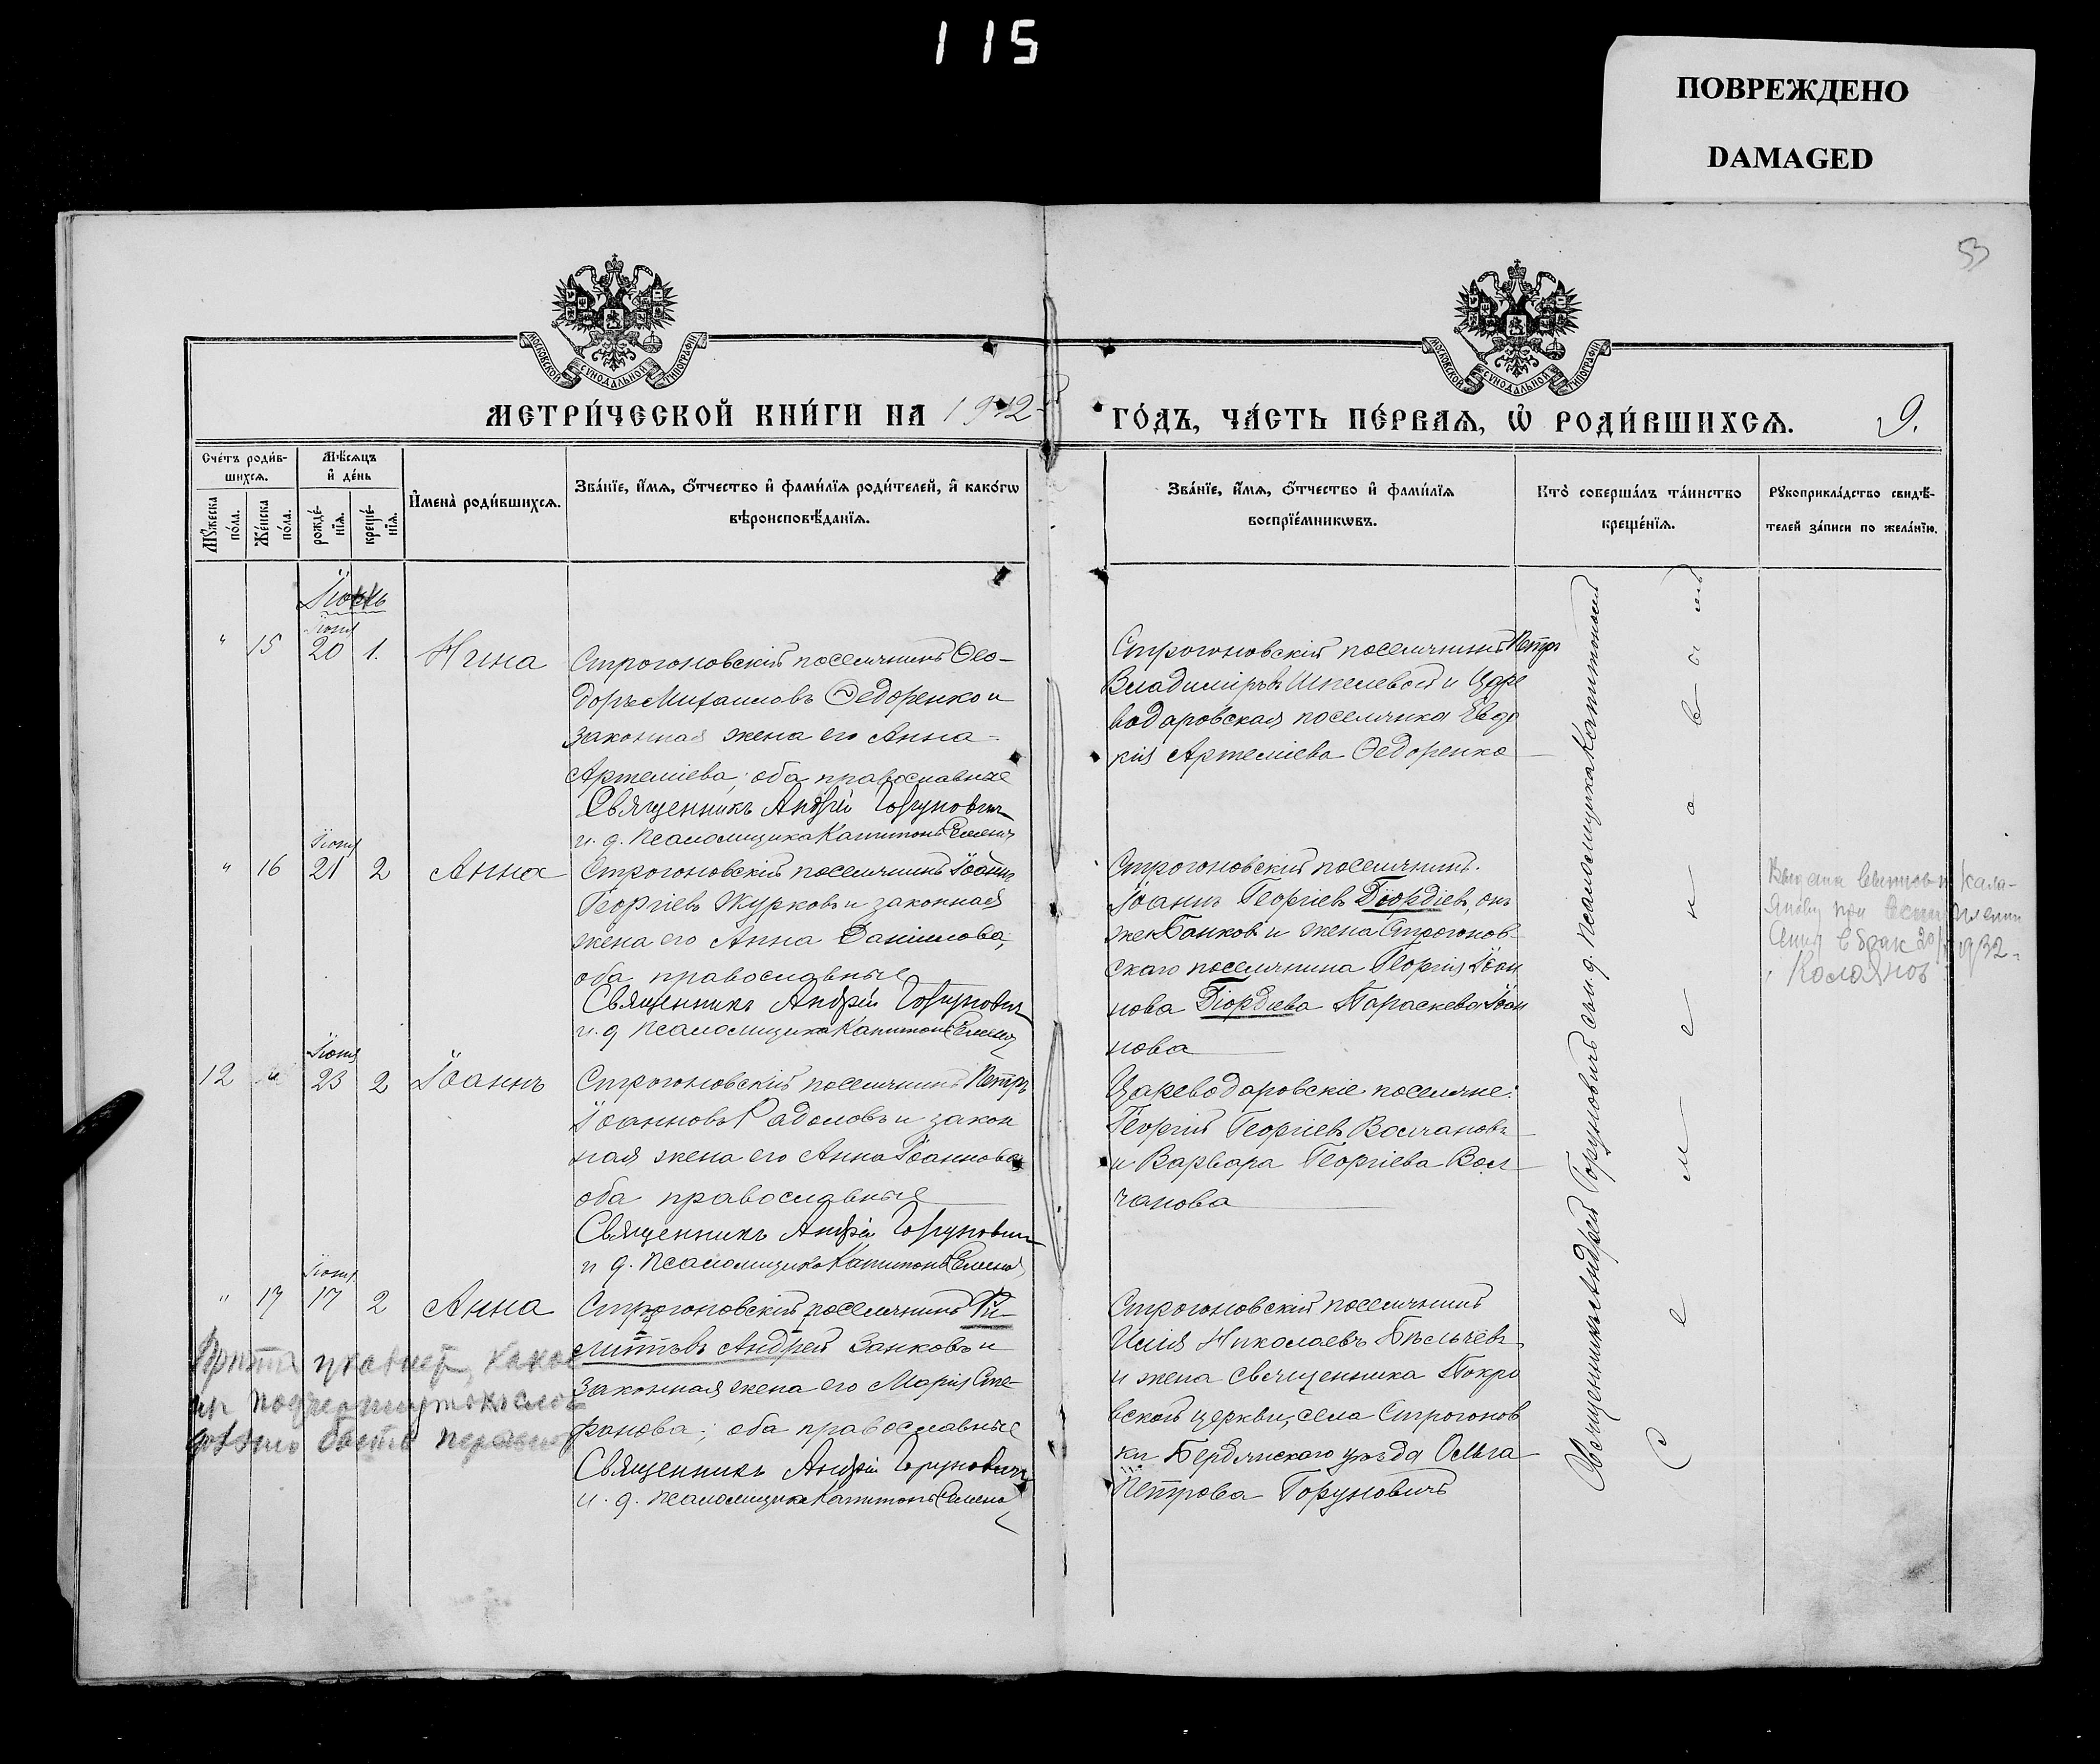 115
ПОВРЕЖДЕНО
DAMAGED
53
МОСКОВСКОЙ СѴНОДАЛЬНОЙ ТИПОГРАФІИ
МОСКОВСКОЙ СѴНОДАЛЬНОЙ ТИПОГРАФІИ
МЕТРИ́ЧЕСКОЙ КНИ́ГИ НА 1912
ГО́ДЪ, ЧА́СТЬ ПЕ́РВАѦ, Ѡ҆ РОДИ́ВШИХСѦ.
9.
Сче́тъ роди́в-
шихсѧ.
Мꙋ́жеска
по́ла.
Же́нска
по́ла.
Мѣ́сѧцъ
и҆ де́нь
рожде́-
нїѧ.
креще́-
нїѧ.
И҆мена̀ роди́вшихсѧ.
Зва́нїе, и҆́мѧ, ѻ҆́тчество и҆ фами́лїѧ роди́телей, и҆ како́гѡ
вѣроисповѣ́данїѧ.
Зва́нїе, и҆́мѧ, ѻ҆́тчество и҆ фами́лїѧ
воспрїе́мникѡвъ.
Кто̀ соверша́лъ та́инство
креще́нїѧ.
Рꙋкоприкла́дство свидѣ́-
телей за́писи по жела́нїю.
Іюня
" 15 20 1. Нина
Строгоновскій поселянинъ Ѳео-
доръ Михаиловъ Ѳедоренко и
законная жена его Анна
Артеміева; оба православные
Священникъ Андрей Горунович
и. д. псаломщика Капитонъ
Строгоновскій поселянинъ Петръ
Владиміровъ Шпелевой и Царе
водаровская поселянка Евдо
кія Артеміева Ѳедоренко
Іюня
" 16 21 2 Анна
Строгоновскій поселянинъ Іоаннъ
Георгіевъ Журковъ и законная
жена его Анна Даніилова;
оба православные
Священникъ Андрей Горунович
и. д. псаломщика Капитонъ
Строгоновскій поселянинъ
Іоаннъ Георгіев Гіордіев, онъ
же Банков и жена Строгонов
скаго поселянина Георгія Іоан
нова Гіордіева Параскева Іоан
нова
в брак 1932
Іюня
12 " 23 2 Іоаннъ
Строгоновскій поселянинъ Петръ
Іоанновъ Радоловъ и закон
ная жена его Анна Іоаннова
оба православные
Священникъ Андрей Горунович
и д. псаломщика Капитонъ
Цареводаровскіе поселяне:
Георгій Георгіевъ Волчановъ
и Варвара Георгіева Вол
чанова
Іюня
" 17 17 2 Анна
Строгоновскій поселянинъ Фи-
липповъ Андрей Занковъ и
законная жена его Марія Сте-
фанова; оба православные
Священникъ Андрей Горунович
и. д. псаломщика Капитонъ
Строгоновскій поселянинъ
Илія Николаевъ Бѣльчевъ
и жена священника Покро
вской церкви, села Строгонов
ки Бердянскаго уѣзда Ольга
Петрова Горуновичъ
Священникъ Андрей Горуновичъ съ и. д. псаломщика Капитономъ
Семеновымъ